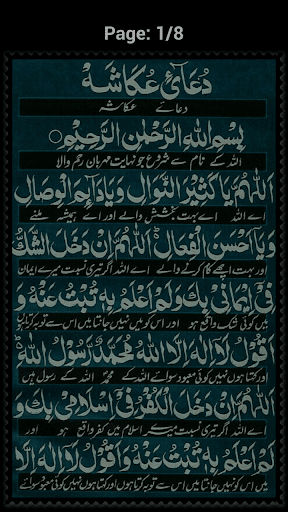 Page: 1/8
دُعَائے عُکاشَہ
دعائے عکاشہ
بِسْمِ اللهِ الرَّحْمٰنِ الرَّحِيْمِ
اللہ کے نام سے شروع جو نہایت مہربان رحم والا
اَللّٰهُمَّ يَا كَثِيْرَ النَّوَالِ وَيَا دَآئِمَ الْوِصَالِ
اے اللہ اے بہت بخشش والے اور اے ہمیشہ ملنے
وَيَا اَحْسَنَ الْفِعَالِ اَللّٰهُمَّ اِنْ دَخَلَ الشَّكُّ
اور بہت اچھے کام کرنے والے اے اللہ اگر تیری نسبت میرے ایمان
فِيْ اِيْمَانِيْ بِكَ وَلَمْ اَعْلَمْ بِهٖ تُبْتُ عَنْهُ وَ
میں کوئی شک واقع ہو اور اس کو میں نہیں جانتا میں اس سے توبہ کرتا ہوں
اَقُوْلُ لَا اِلٰهَ اِلَّا اللهُ مُحَمَّدٌ رَّسُوْلُ اللهِ
اور کہتا ہوں نہیں کوئی معبود سوائے اللہ کے محمدؐ اللہ کے رسول ہیں
اَللّٰهُمَّ اِنْ دَخَلَ الْكُفْرُ فِيْ اِسْلَامِيْ بِكَ وَ
اے اللہ اگر تیری نسبت میرے اسلام میں کفر واقع ہو اور
لَمْ اَعْلَمْ بِهٖ تُبْتُ عَنْهُ وَاَقُوْلُ لَا اِلٰهَ اِلَّا
میں کو نہیں جانتا میں اس سے توبہ کرتا ہوں اور کہتا ہوں نہیں کوئی معبود سوائے